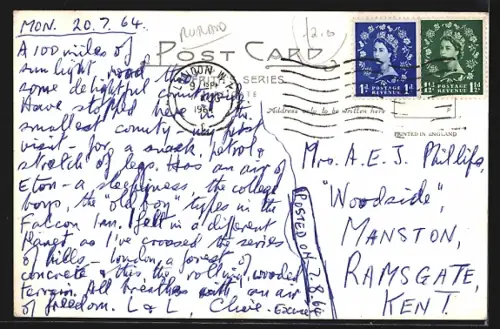 MON. 20.7.64.
RURAD
12.0
POST CARD
SERIES
LONDON W.1
9
1964
1D POSTAGE REVENUE 1D
1½D POSTAGE REVENUE 1½D
Address only to be written here
PRINTED IN ENGLAND
A 100 miles of
sunlight road thro'
some delightful countryside.
Have stopped here in the
smallest county – my first
visit – for a snack, petrol &
stretch of legs. Has an air of
Eton – a sleepiness, the college
boys, the "old boy" types in the
Falcon Inn. I felt in a different
as I've crossed the series
of hills – London, a forest of
concrete & this, the rolling, wooded
terrain. All breathes with an air
of freedom. L & L, Excuse
POSTED ON 7.8.64
Mrs. A.E.J. Phillips,
"Woodside",
MANSTON,
RAMSGATE,
KENT.